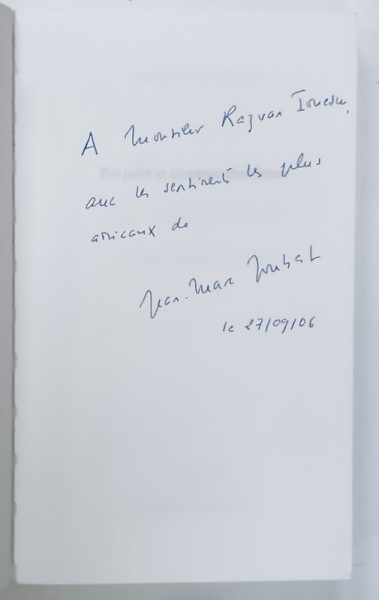 A Monsieur Razvan Ionescu,
avec les sentiments les plus
amicaux de
Jean-Marc Joubert
le 27/09/06